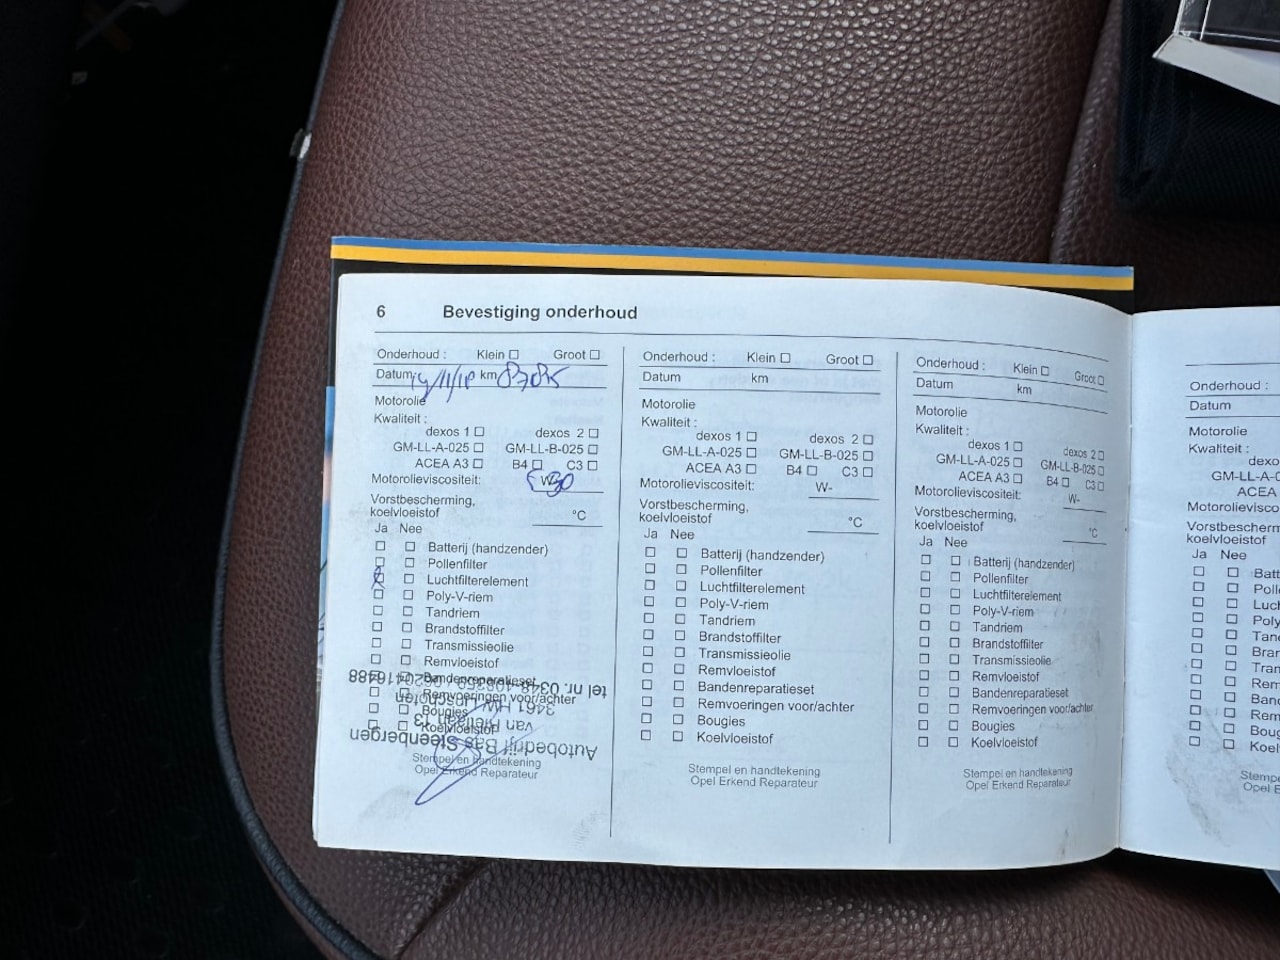 6 Bevestiging onderhoud
Onderhoud : Klein ☐ Groot ☐
Datum km
Motorolie
Kwaliteit :
dexos 1 ☐ dexos 2 ☐
GM-LL-A-025 ☐ GM-LL-B-025 ☐
ACEA A3 ☐ B4 ☐ C3 ☐
Motorolieviscositeit: W-30
Vorstbescherming,
koelvloeistof °C
Ja Nee
☐ ☐ Batterij (handzender)
☐ ☐ Pollenfilter
☐ ☐ Luchtfilterelement
☐ ☐ Poly-V-riem
☐ ☐ Tandriem
☐ ☐ Brandstoffilter
☐ ☐ Transmissieolie
☐ ☐ Remvloeistof
☐ ☐ Bandenreparatieset
☐ ☐ Remvoeringen voor/achter
☐ ☐ Bougies
☐ ☐ Koelvloeistof
Stempel en handtekening
Opel Erkend Reparateur
Autobedrijf Bas Steenbergen
3461 HW Linschoten
tel nr. 0348
Onderhoud : Klein ☐ Groot ☐
Datum km
Motorolie
Kwaliteit :
dexos 1 ☐ dexos 2 ☐
GM-LL-A-025 ☐ GM-LL-B-025 ☐
ACEA A3 ☐ B4 ☐ C3 ☐
Motorolieviscositeit: W-
Vorstbescherming,
koelvloeistof °C
Ja Nee
☐ ☐ Batterij (handzender)
☐ ☐ Pollenfilter
☐ ☐ Luchtfilterelement
☐ ☐ Poly-V-riem
☐ ☐ Tandriem
☐ ☐ Brandstoffilter
☐ ☐ Transmissieolie
☐ ☐ Remvloeistof
☐ ☐ Bandenreparatieset
☐ ☐ Remvoeringen voor/achter
☐ ☐ Bougies
☐ ☐ Koelvloeistof
Stempel en handtekening
Opel Erkend Reparateur
Onderhoud : Klein ☐ Groot ☐
Datum km
Motorolie
Kwaliteit :
dexos 1 ☐ dexos 2 ☐
GM-LL-A-025 ☐ GM-LL-B-025 ☐
ACEA A3 ☐ B4 ☐ C3 ☐
Motorolieviscositeit: W-
Vorstbescherming,
koelvloeistof °C
Ja Nee
☐ ☐ Batterij (handzender)
☐ ☐ Pollenfilter
☐ ☐ Luchtfilterelement
☐ ☐ Poly-V-riem
☐ ☐ Tandriem
☐ ☐ Brandstoffilter
☐ ☐ Transmissieolie
☐ ☐ Remvloeistof
☐ ☐ Bandenreparatieset
☐ ☐ Remvoeringen voor/achter
☐ ☐ Bougies
☐ ☐ Koelvloeistof
Stempel en handtekening
Opel Erkend Reparateur
Onderhoud :
Datum
Motorolie
Kwaliteit :
dexo
GM-LL-A-0
ACEA
Motorolievisco
Vorstbescherm
koelvloeistof
Ja Nee
☐ ☐ Batt
☐ ☐ Polle
☐ ☐ Luc
☐ ☐ Poly
☐ ☐ Tand
☐ ☐ Bran
☐ ☐ Tran
☐ ☐ Rem
☐ ☐ Band
☐ ☐ Rem
☐ ☐ Boug
☐ ☐ Koel
Stempe
Opel E